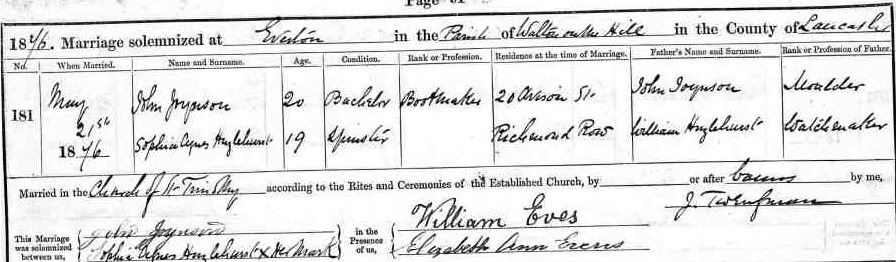 Page
1876. Marriage solemnized at Everton in the Parish of Walton on the Hill in the County of Lancaster
No. When Married. Name and Surname. Age. Condition. Rank or Profession. Residence at the time of Marriage. Father's Name and Surname. Rank or Profession of Father.
181 May 21st 1876 John Joynson 20 Bachelor Bootmaker 20 St. John Joynson Moulder
Sophia Agnes Hazlehurst 19 Spinster Richmond Row William Hazlehurst Watchmaker
Married in the Church of St Timothy according to the Rites and Ceremonies of the Established Church, by or after banns by me,
J.
This Marriage was solemnized between us, John Joynson in the Presence of us, William Eves
Sophia Agnes Hazlehurst X Her Mark Elizabeth Ann